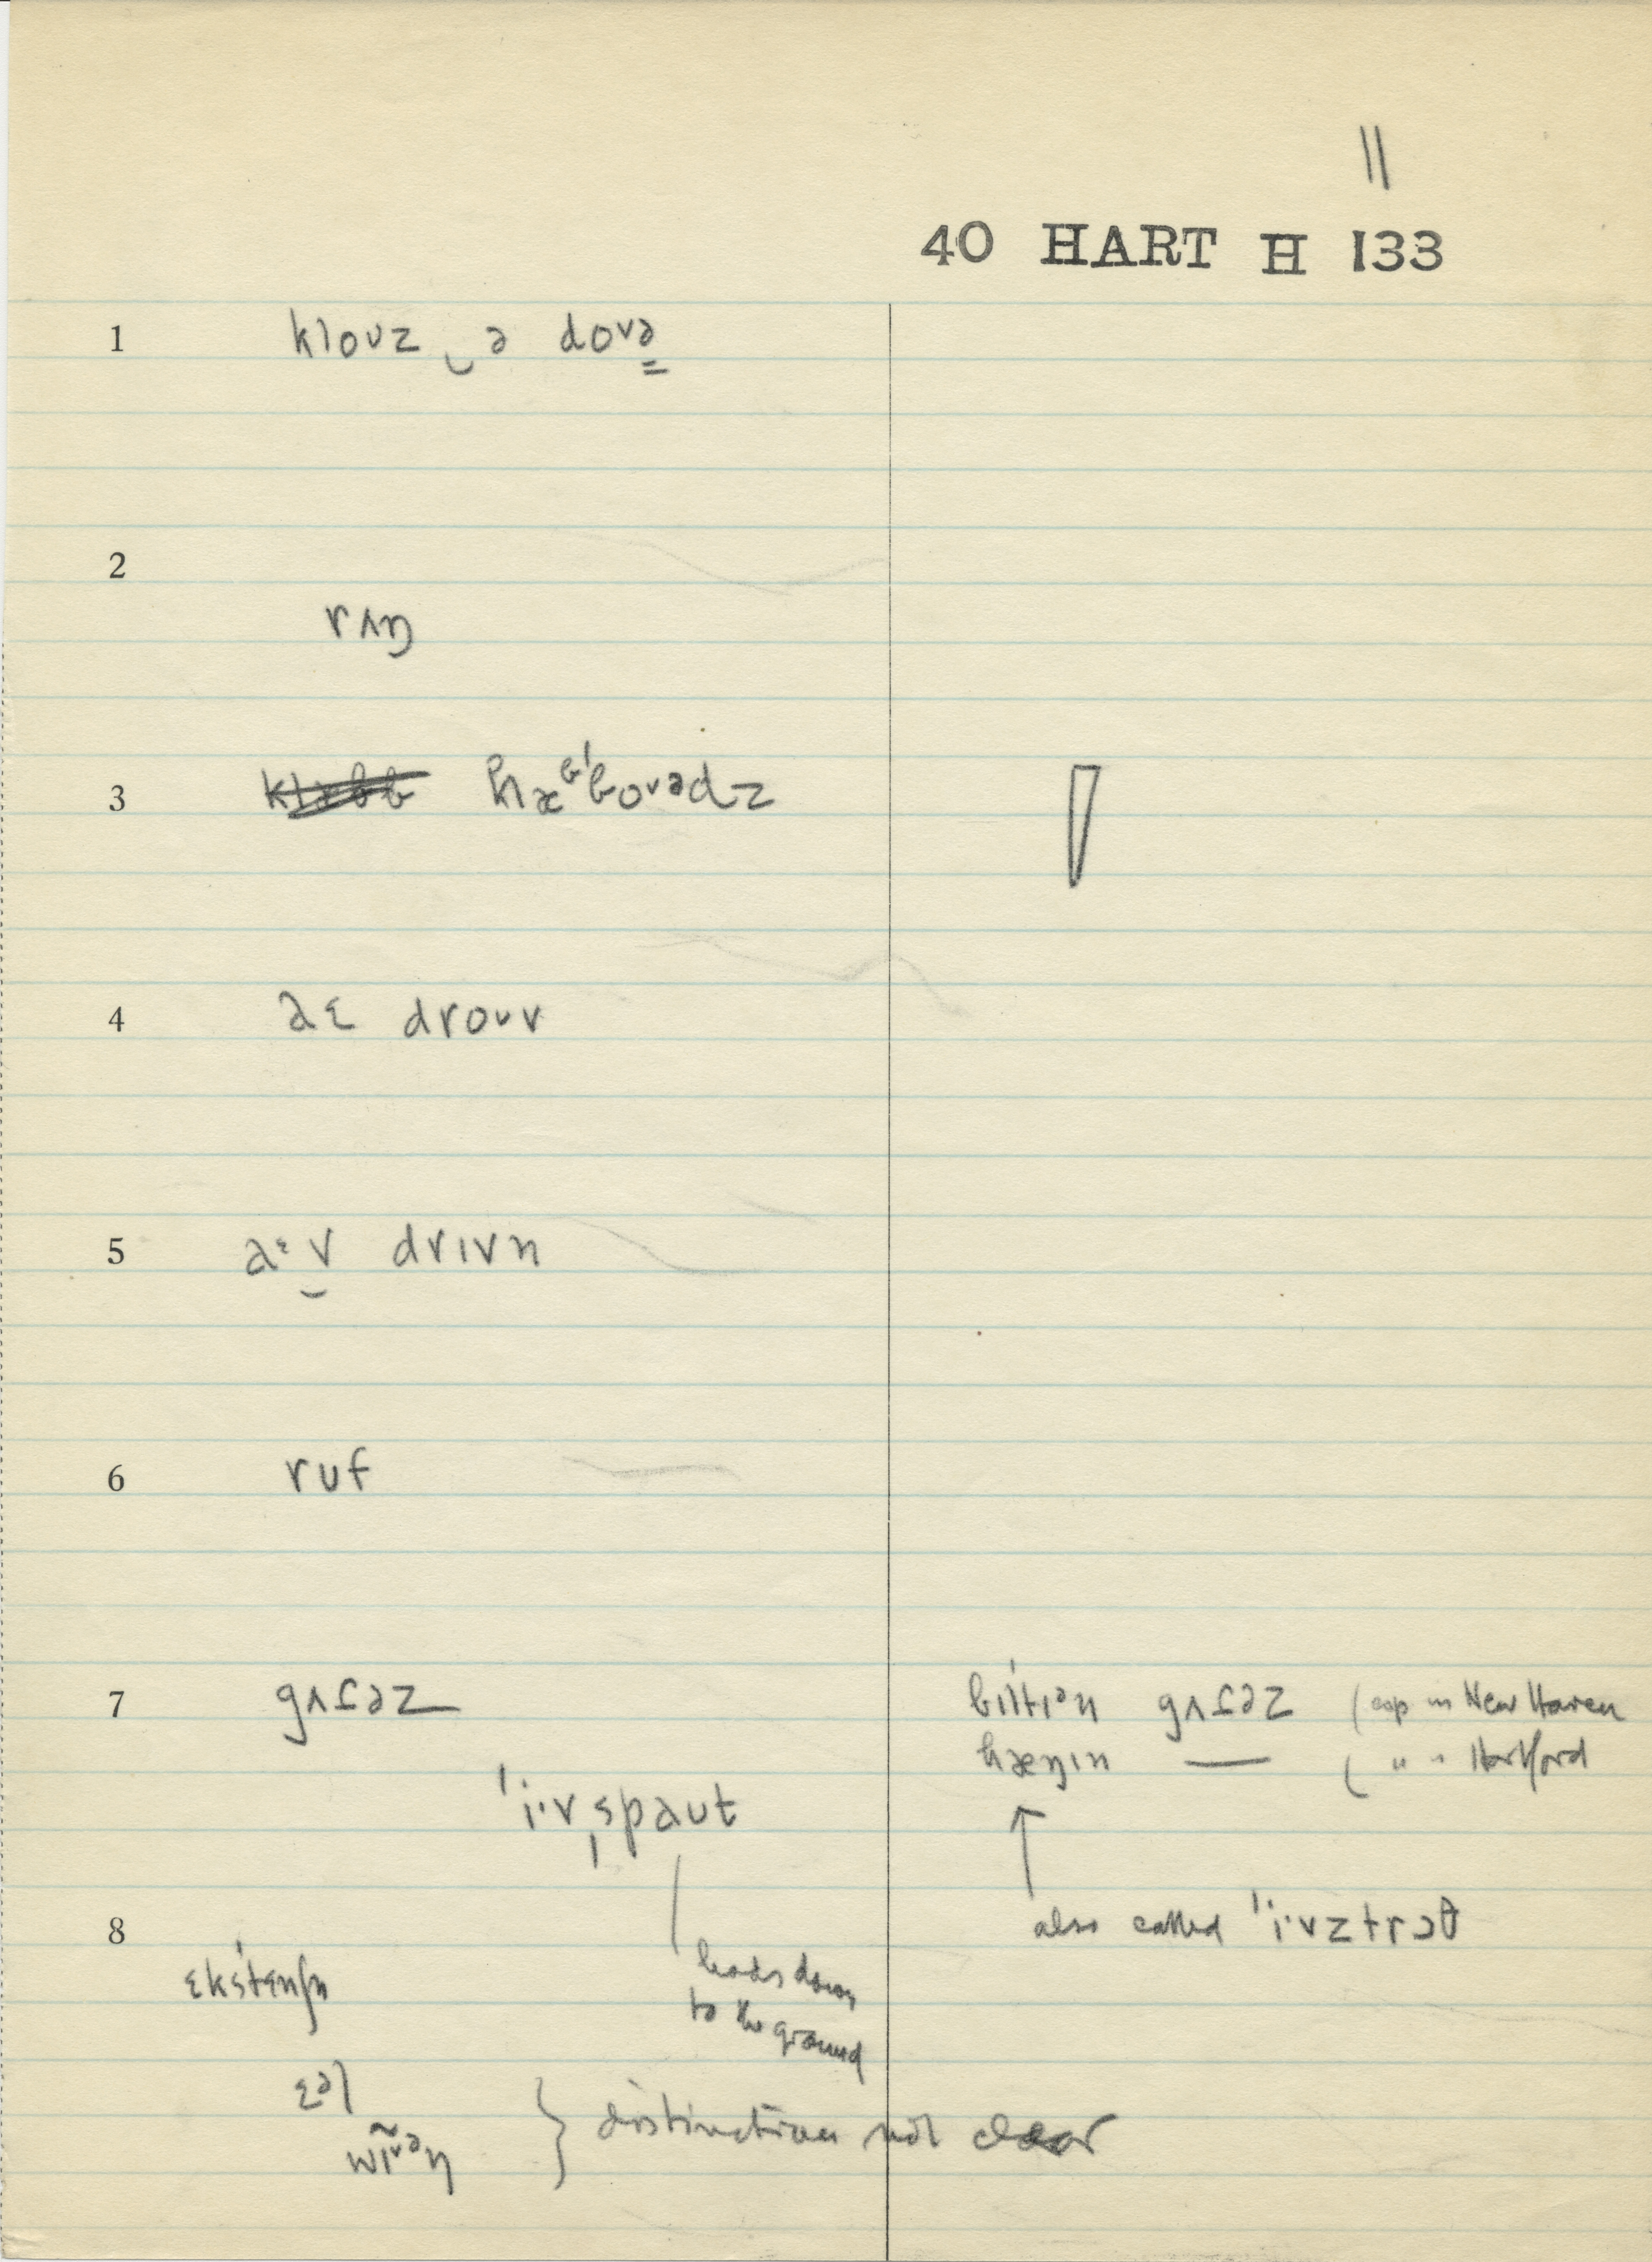 11
40 HART H 133
1 klouz‿ə doᴠə
2
rʌŋ
3 hæᵇˈboᴠədz
4 aɛ drouv
5 aᵋ‿v drɪvn
6 ruf
7 gʌtəz
bɪltɪᵊn gʌtəz (esp in New Haven
hæŋɪn — ( " " Hartford
ˈi·vˌspaut
also called ˈi·vztrɔθ
8
ɛkstɛnʃn
leads down
to the ground
ɛəl
} distinction not clear